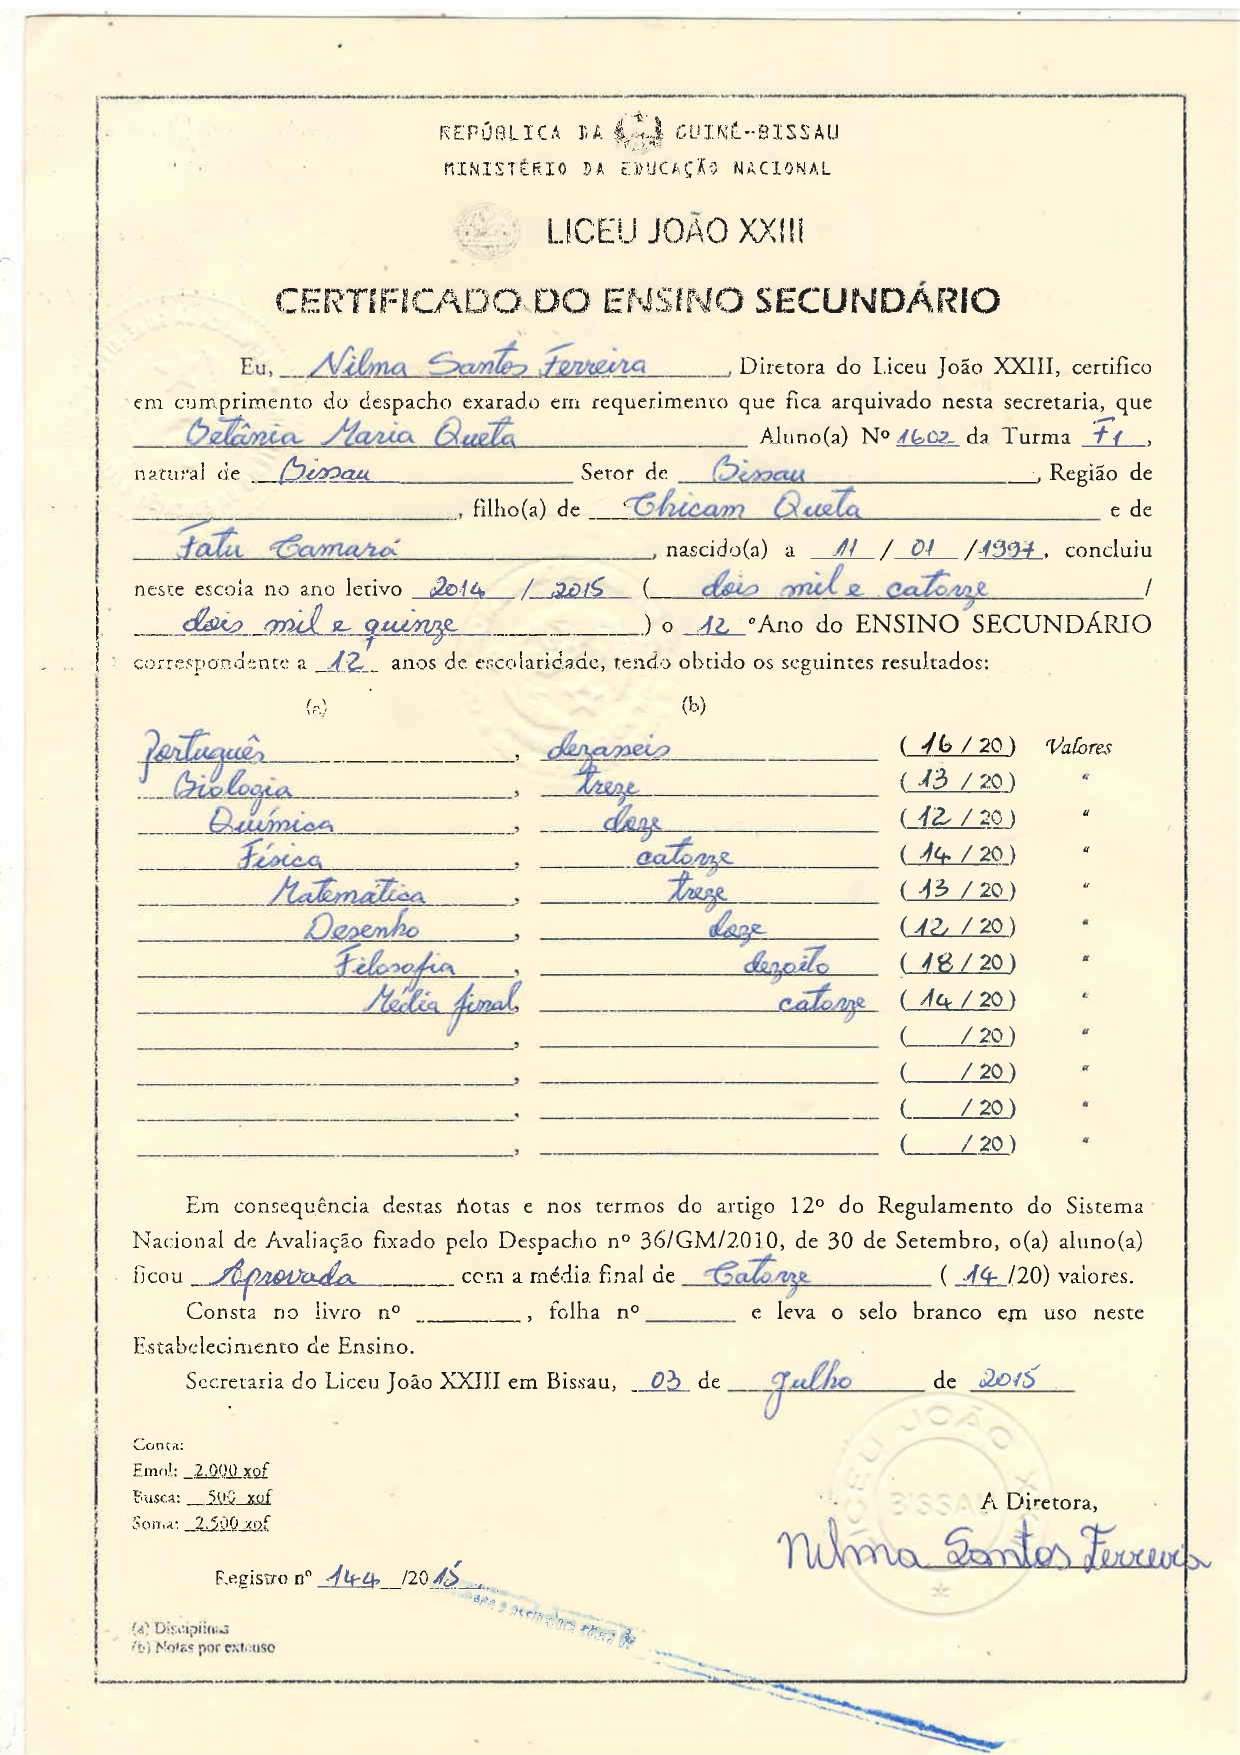 REPÚBLICA DA GUINÉ-BISSAU
MINISTÉRIO DA EDUCAÇÃO NACIONAL
LICEU JOÃO XXIII
CERTIFICADO DO ENSINO SECUNDÁRIO
Eu, Nilma Santos Ferreira, Diretora do Liceu João XXIII, certifico
em cumprimento do despacho exarado em requerimento que fica arquivado nesta secretaria, que
Betânia Maria Queta Aluno(a) Nº 1602 da Turma F1,
natural de Bissau Setor de Bissau, Região de
, filho(a) de Chicam Queta e de
Fatu Camará, nascido(a) a 11 / 01 / 1997, concluiu
neste escola no ano letivo 2014 / 2015 ( dois mil e catorze /
dois mil e quinze ) o 12 º Ano do ENSINO SECUNDÁRIO
correspondente a 12 anos de escolaridade, tendo obtido os seguintes resultados:
(a) (b)
Português, dezaseis ( 16 / 20 ) Valores
Biologia, treze ( 13 / 20 ) "
Química, doze ( 12 / 20 ) "
Física, catorze ( 14 / 20 ) "
Matemática, treze ( 13 / 20 ) "
Desenho, doze ( 12 / 20 ) "
Filosofia, dezoito ( 18 / 20 ) "
Média final, catorze ( 14 / 20 ) "
, ( / 20 ) "
, ( / 20 ) "
, ( / 20 ) "
, ( / 20 ) "
Em consequência destas notas e nos termos do artigo 12º do Regulamento do Sistema
Nacional de Avaliação fixado pelo Despacho nº 36/GM/2010, de 30 de Setembro, o(a) aluno(a)
ficou Aprovada com a média final de Catorze ( 14 /20) valores.
Consta no livro nº , folha nº e leva o selo branco em uso neste
Estabelecimento de Ensino.
Secretaria do Liceu João XXIII em Bissau, 03 de julho de 2015
Conta:
Emol: 2.000 xof
Busca: 500 xof
Soma: 2.500 xof
LICEU JOÃO
BISSAU
A Diretora,
Nilma Santos Ferreira
Registro nº 144 /2015
(a) Disciplinas
(b) Notas por extenso